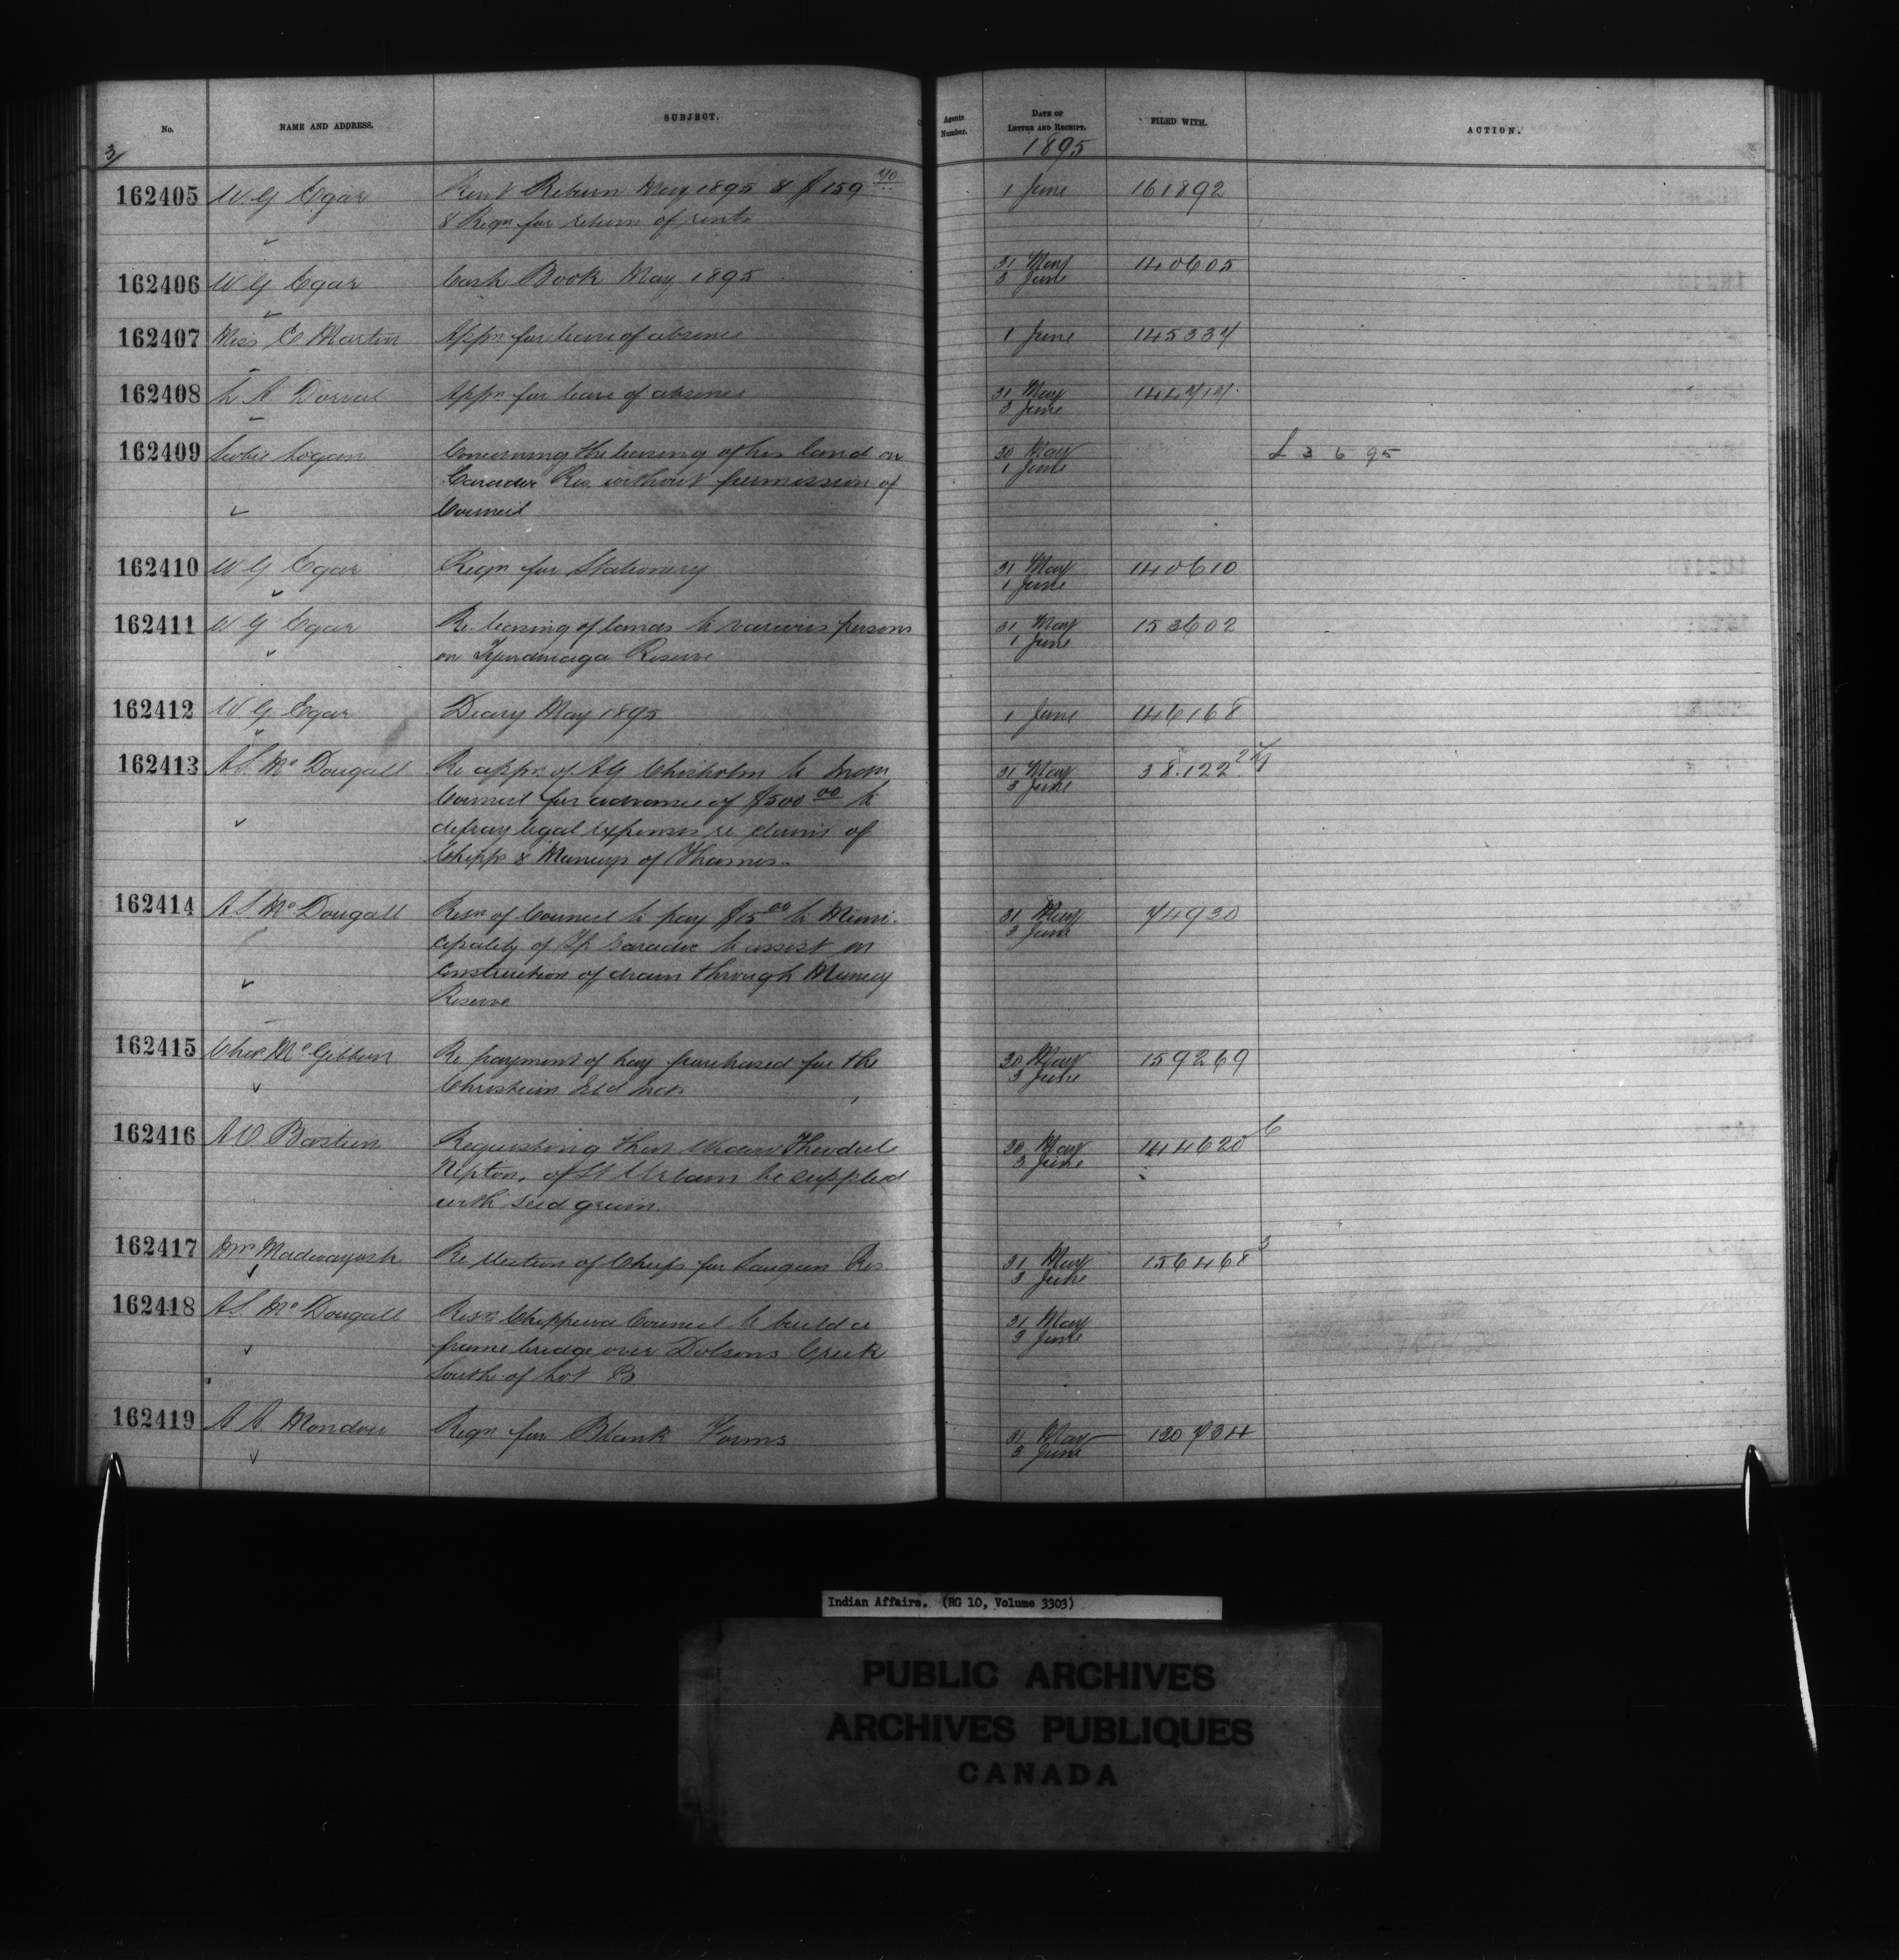 No.
NAME AND ADDRESS.
SUBJECT.
Agents Number.
DATE OF LETTER AND RECEIPT.
FILED WITH.
ACTION.
3/
1895
162405 W G Egar Rent Return May 1895 & $159 70 1 June 161892
& Reqn for return of rents
162406 W G Egar Cash Book May 1895 31 May 140605
3 June
162407 Miss E Martin Appn for leave of absence 1 June 145334
162408 L A Dorval Appn for leave of absence 31 May
3 June
162409 Logan Concerning the leasing of his land on 30 May L 3 6 95
Caradoc Res. without permission of 1 June
Council
162410 W G Egar Reqn for Stationery 31 May 140610
1 June
162411 W G Egar Re leasing of lands to various persons 31 May 153602
on Tyendinaga Reserve 1 June
162412 W G Egar Diary May 1895 1 June 146168
162413 A S McDougall Re appn of A G Chisholm to from 31 May 38.122
Council for advance of $500 00 to 3 June
defray legal expenses re claims of
Chipps & Munceys of Thames
162414 A S McDougall Resn of Council to pay $15 00 to Muni- 31 May 74930
cipality of Tp Caradoc to assist in 3 June
construction of drain through Muncey
Reserve
162415 Chas McGibbon Re payment of hay purchased for the 30 May 159269
Christian Isld Inds 3 June
162416 A O Bastien Requesting that Widow Theodule 30 May 144620 6
Nepton, of St Urbain be supplied 3 June
with seed grain.
162417 Wm Madwayosh Re election of Chiefs for Saugeen Res 31 May 156468 3
3 June
162418 A S McDougall Resn Chippewa Council to build a 31 May
frame bridge over Dolsons Creek 3 June
South of Lot B
162419 A A Mondou Reqn for Blank Forms 31 May 130734
3 June
Indian Affairs. (RG 10, Volume 3303)
PUBLIC ARCHIVES
ARCHIVES PUBLIQUES
CANADA